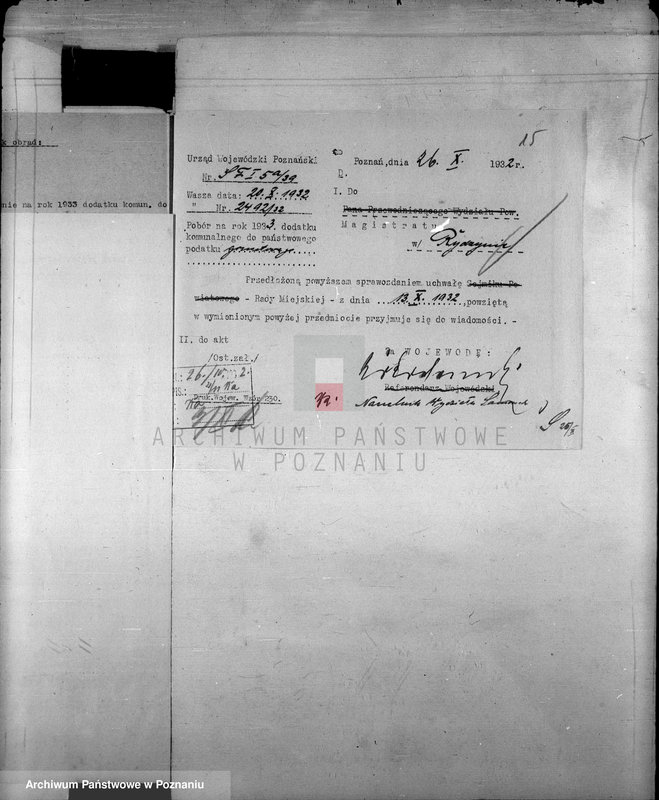 k obrad:
nie na rok 1933 dodatku komun. do
15
Urząd Wojewódzki Poznański
Nr. S F I 5a/39
Wasza data: 20.X.1932
Nr. 2492/32
Pobór na rok 1933 dodatku
komunalnego do państwowego
podatku gruntowego
Poznań, dnia 26. X. 1932 r.
I. Do
Pana Przewodniczącego Wydziału Pow.
Magistratu
w/ Rydzynie
Przedłożoną powyższem sprawozdaniem uchwałę Sejmiku Po-
wiatowego - Rady Miejskiej - z dnia 13. X. 1932, powziętą
w wymienionym powyżej przedmiocie przyjmuje się do wiadomości. -
II. do akt
/Ost.zał./
Za WOJEWODĘ:
Referendarz Wojewódzki
Naczelnik Wydziału
Druk.Wojew. Wzór 230.
ARCHIWUM PAŃSTWOWE
W POZNANIU
Archiwum Państwowe w Poznaniu